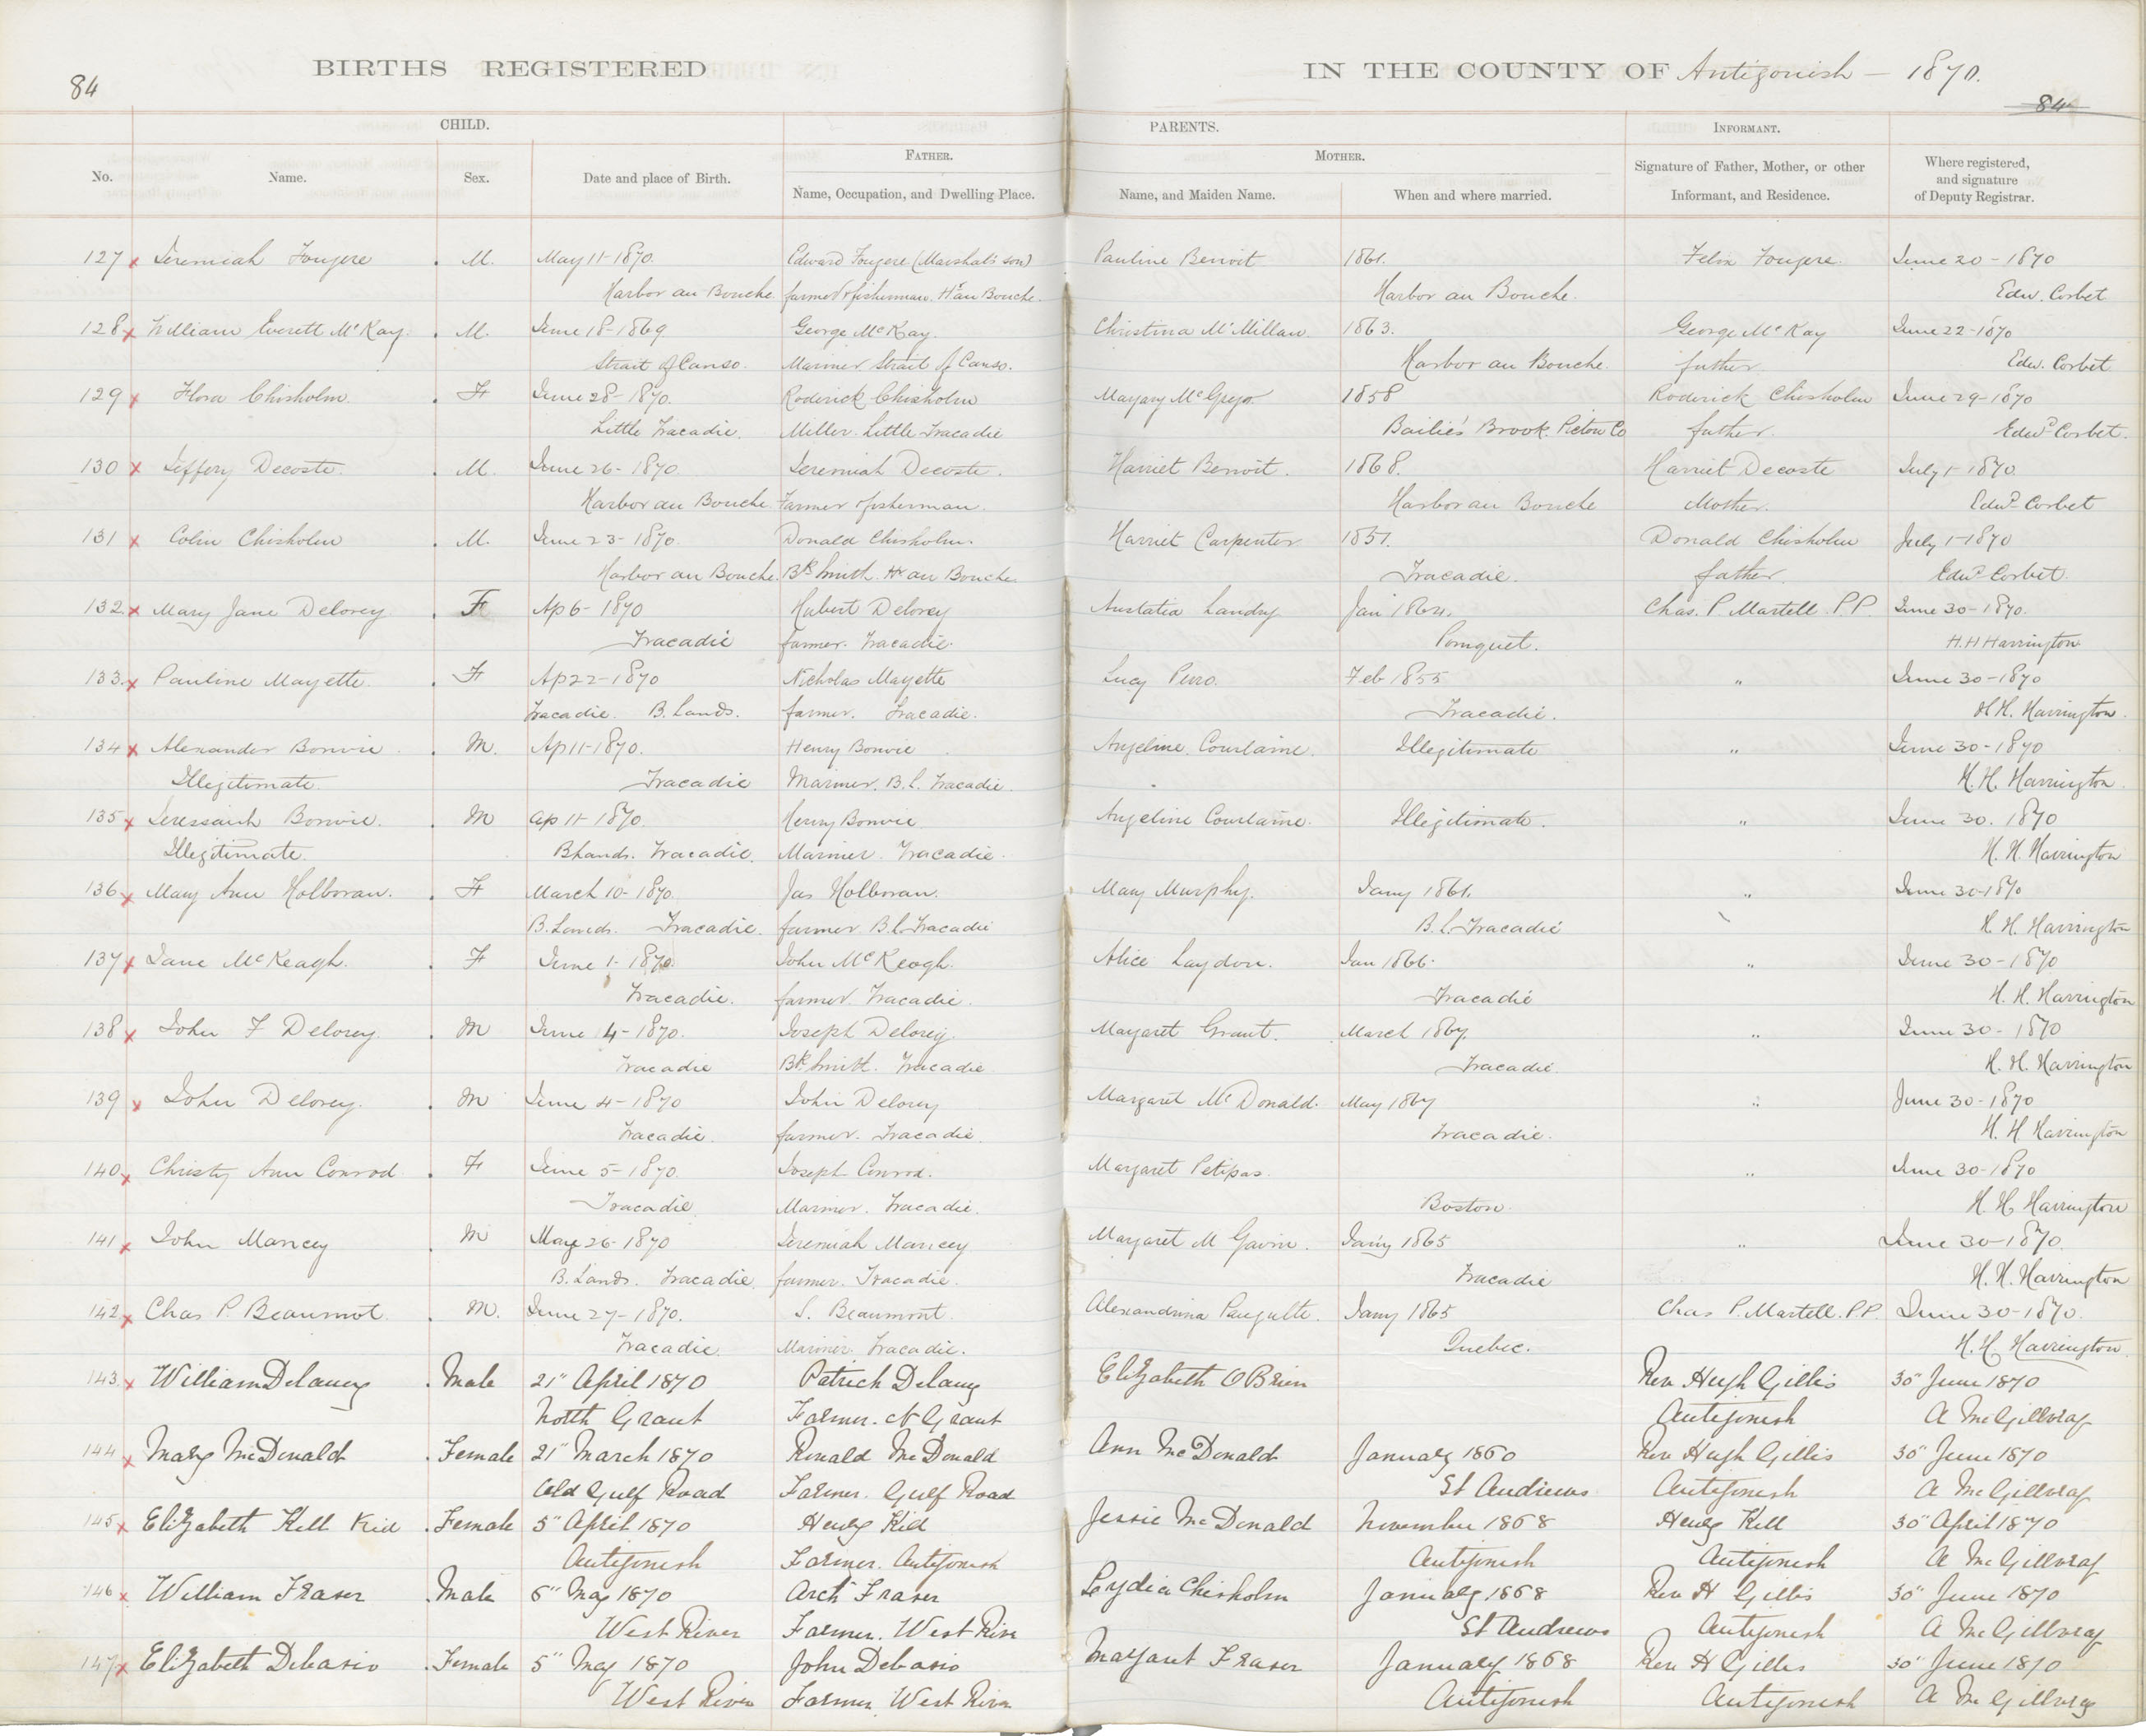 84
BIRTHS REGISTERED IN THE COUNTY OF Antigonish — 1870.
84
CHILD. PARENTS. INFORMANT.
No. Name. Sex. Date and place of Birth. FATHER. Name, Occupation, and Dwelling Place. MOTHER. Name, and Maiden Name. When and where married. Signature of Father, Mother, or other Informant, and Residence. Where registered, and signature of Deputy Registrar.
127 x Jeremiah Fougere . M. May 11-1870. Edward Fougere (Marshal's son) Pauline Benoit 1861. Felix Fougere. June 20-1870
Harbor au Bouche. farmer & fisherman. Hr au Bouche. Harbor au Bouche. Edw. Corbet
128 x William Everett McKay. . M. June 18-1869. George McKay. Christina McMillan. 1863. George McKay June 22-1870
Strait of Canso. Mariner Strait of Canso. Harbor au Bouche. father. Edw. Corbet
129 x Flora Chisholm. . F June 28-1870. Roderick Chisholm Margary McGregor 1858 Roderick Chisholm June 29-1870
Little Tracadie. Miller. Little Tracadie Bailie's Brook. Pictou Co father. Edwd Corbet.
130 x Jeffery Decoste. . M. June 26-1870. Jeremiah Decoste. Harriet Benoit. 1868. Harriet Decoste July 1-1870.
Harbor au Bouche. Farmer & fisherman. Harbor au Bouche Mother. Edwd Corbet
131 x Colin Chisholm . M. June 23-1870. Donald Chisholm. Harriet Carpenter 1851. Donald Chisholm July 1-1870
Harbor au Bouche. Bk Smith. Hr au Bouche. Tracadie. father. Edwd Corbet.
132 x Mary Jane Delorey . F Ap 6-1870 Hubert Delorey Anstatia Landry Jan 1864. Chas. P. Martell. P.P. June 30-1870.
Tracadie farmer. Tracadie. Pomquet. H.H Harrington
133 x Pauline Mayette. . F Ap 22-1870 Nicholas Mayette Lucy Perro. Feb 1855 " June 30-1870
Tracadie. B. Lands. farmer. Tracadie. Tracadie. H H. Harrington.
134 x Alexander Bonvie. . M. Ap 11-1870. Henry Bonvie Angeline Courlaine. Illegitimate " June 30-1870
Illegitimate. Tracadie Mariner. B.L. Tracadie. H. H. Harrington.
135 x Jeressaiah Bonvie. . M ap 11-1870. Henry Bonvie Angeline Courlaine. Illegitimate. " June 30. 1870
Illegitimate. B Lands. Tracadie. Mariner. Tracadie. H. H. Harrington
136 x Mary Ann Holloran. . F March 10-1870. Jas Holloran. Mary Murphy. Jany 1861. " June 30-1870
B. Lands. Tracadie. farmer B.L. Tracadie B. L. Tracadie H. H. Harrington
137 x Jane McKeagh. . F June 1-1870. John McKeogh. Alice Laydon. Jan 1866. " June 30-1870
Tracadie. farmer Tracadie. Tracadie H. H. Harrington
138 x John F Delorey. . M June 4-1870. Joseph Delorey. Margaret Grant. March 1867. " June 30-1870
Tracadie Bk. Smith. Tracadie Tracadie. H. H. Harrington
139 x John Delorey. . M June 4-1870 John Delorey Margaret McDonald. May 1867 " June 30-1870
Tracadie. farmer. Tracadie. Tracadie. H. H Harrington
140 x Christy Ann Conrod. . F June 5-1870. Joseph Conrod. Margaret Petipas. " June 30-1870
Tracadie. Mariner. Tracadie. Boston. H. H. Harrington
141 x John Mancey . M May 26-1870 Jeremiah Mancey Margaret M Gavin. Jany 1865 " June 30-1870.
B. Lands. Tracadie farmer. Tracadie. Tracadie H. H. Harrington
142 x Chas P. Beaumont. . M. June 27-1870. S. Beaumont. Alexandrina Jany 1865 Chas P. Martell. P.P. June 30-1870.
Tracadie. Mariner Tracadie. Quebec. H. H. Harrington.
143 x William Delaney . Male 21" April 1870 Patrick Delaney Elizabeth OBrien Rev Hugh Gillis 30" June 1870
North Grant Farmer. N Grant Antigonish A McGillvray
144 x Mary McDonald . Female 21" March 1870 Ronald McDonald Ann McDonald January 1860 Rev Hugh Gillis 30" June 1870
Old Gulf Road Farmer. Gulf Road St Andrews Antigonish A McGillvray
145 x Elizabeth Kell Kid . Female 5" April 1870 Henry Kell Jessie McDonald November 1868 Henry Kell 30" April 1870
Antigonish Farmer. Antigonish Antigonish Antigonish A McGillvray
146 x William Fraser . Male 5" May 1870 Arch Fraser Lydia Chisholm January 1868 Rev H Gillis 30" June 1870
West River Farmer. West River St Andrews Antigonish A McGillvray
147 x Elizabeth Debasio . Female 5" May 1870 John Debasio Margaret Fraser January 1868 Rev H Gillis 30" June 1870
West River Farmer. West River Antigonish Antigonish A McGillvray